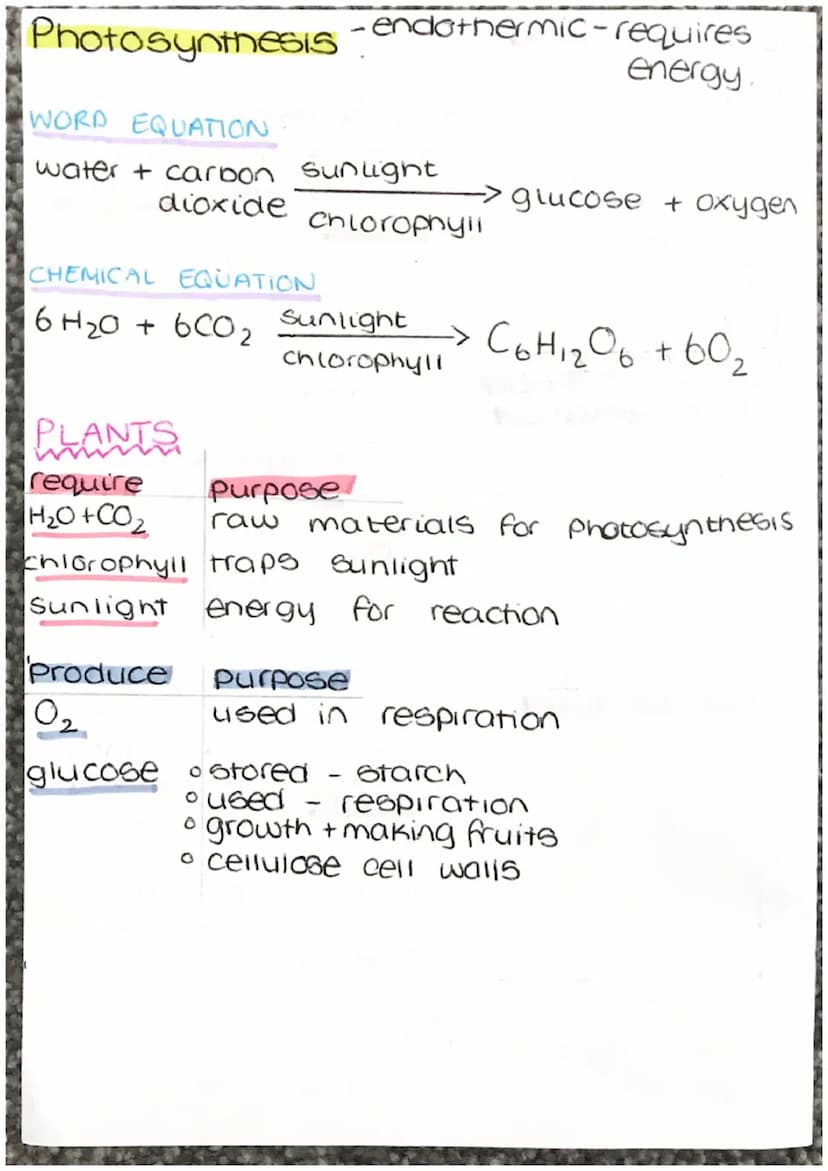 Photosynthesis - endothermic - requires
energy.
WORD EQUATION
water + carbon sunlight
dioxide → glucose + oxygen
chlorophyll
CHEMICAL EQUATION
6H₂O + 6CO₂ sunlight → C₆H₁₂O₆ + 6O₂
chlorophyll
PLANTS
require purpose
H₂O + CO₂ raw materials for photosynthesis
chlorophyll traps sunlight
sunlight energy for reaction
produce purpose
O₂ used in respiration
glucose ○ stored - starch
○ used - respiration
○ growth + making fruits
○ cellulose cell walls